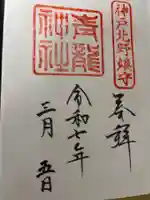 神戸北野鎮守
奉拝
青龍
神社
令和七年
三月五日